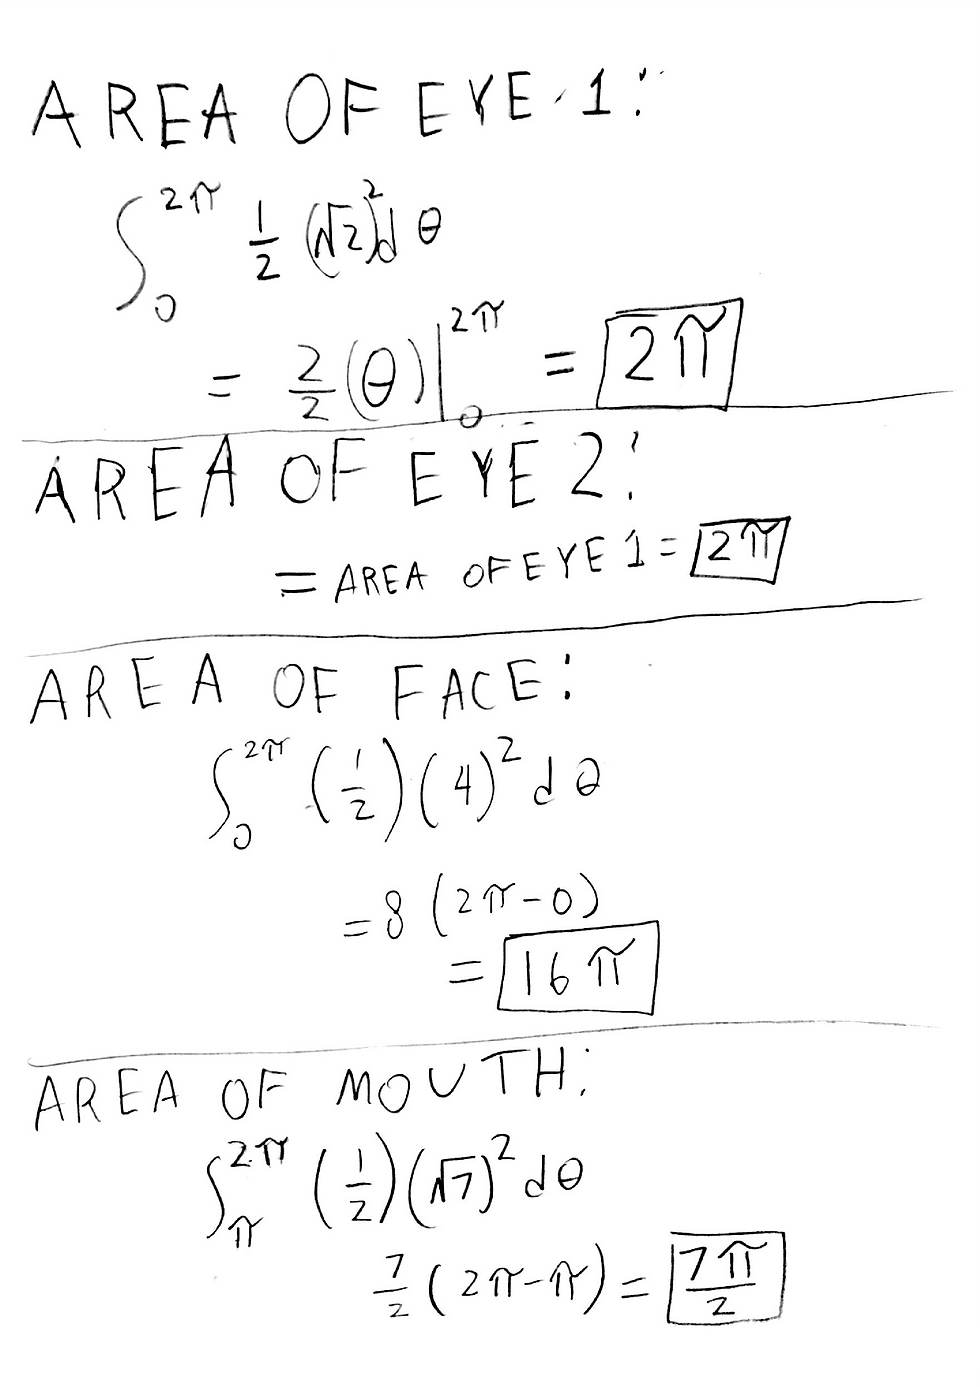 AREA OF EYE 1:
∫₀^2π 1/2 (√2)² dθ
= 2/2 (θ)|₀^2π = 2π
AREA OF EYE 2:
= AREA OF EYE 1 = 2π
AREA OF FACE:
∫₀^2π (1/2)(4)² dθ
= 8 (2π-0)
= 16π
AREA OF MOUTH:
∫_π^2π (1/2)(√7)² dθ
7/2 (2π-π) = 7π/2